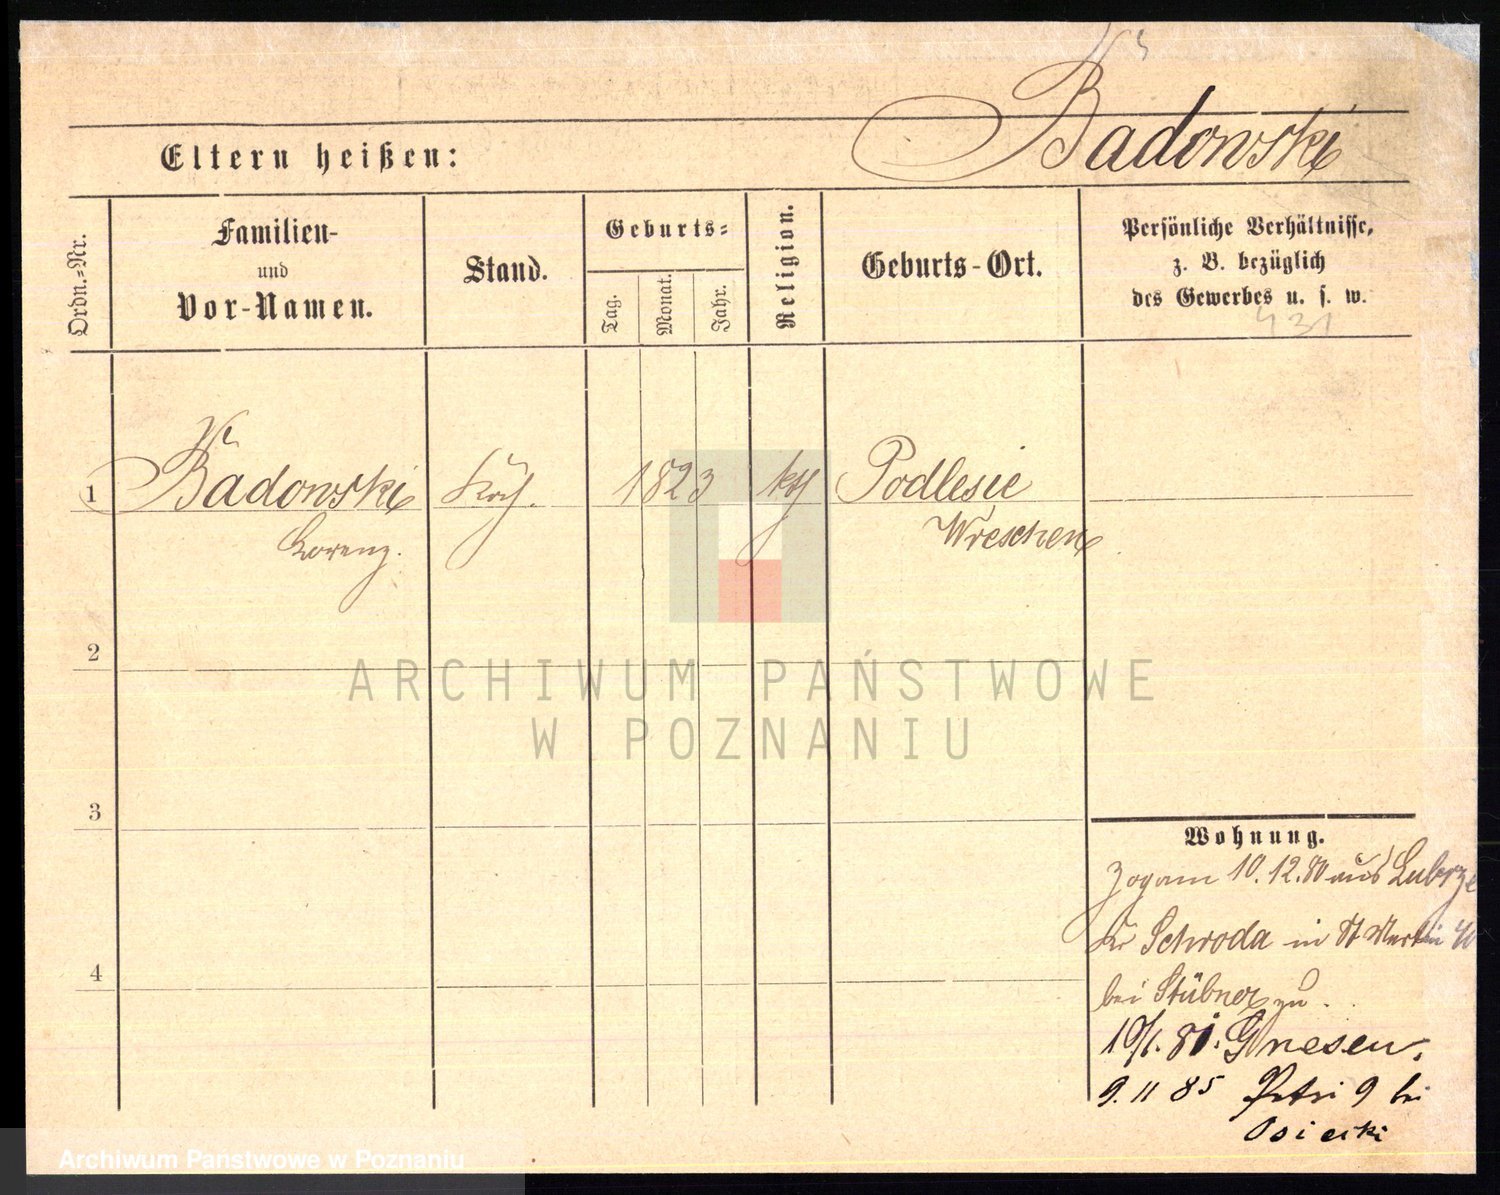 Badowski
Eltern heißen:
Ordn.-Nr.
Familien-
und
Vor-Namen.
Stand.
Geburts-
Tag.
Monat.
Jahr.
Religion.
Geburts-Ort.
Persönliche Verhältnisse,
z. B. bezüglich
des Gewerbes u. s. w.
431
1 Badowski Koch. 1823 kth Podlesie
Lorenz. Wreschen
2
ARCHIWUM PAŃSTWOWE
W POZNANIU
3
Wohnung.
Zog am 10.12.80 aus
Schroda in St Martin
4
bei Stübner zu.
19/1. 81. Gnesen.
9. 11 85 Petri 9 bei
Osiecki
Archiwum Państwowe w Poznaniu